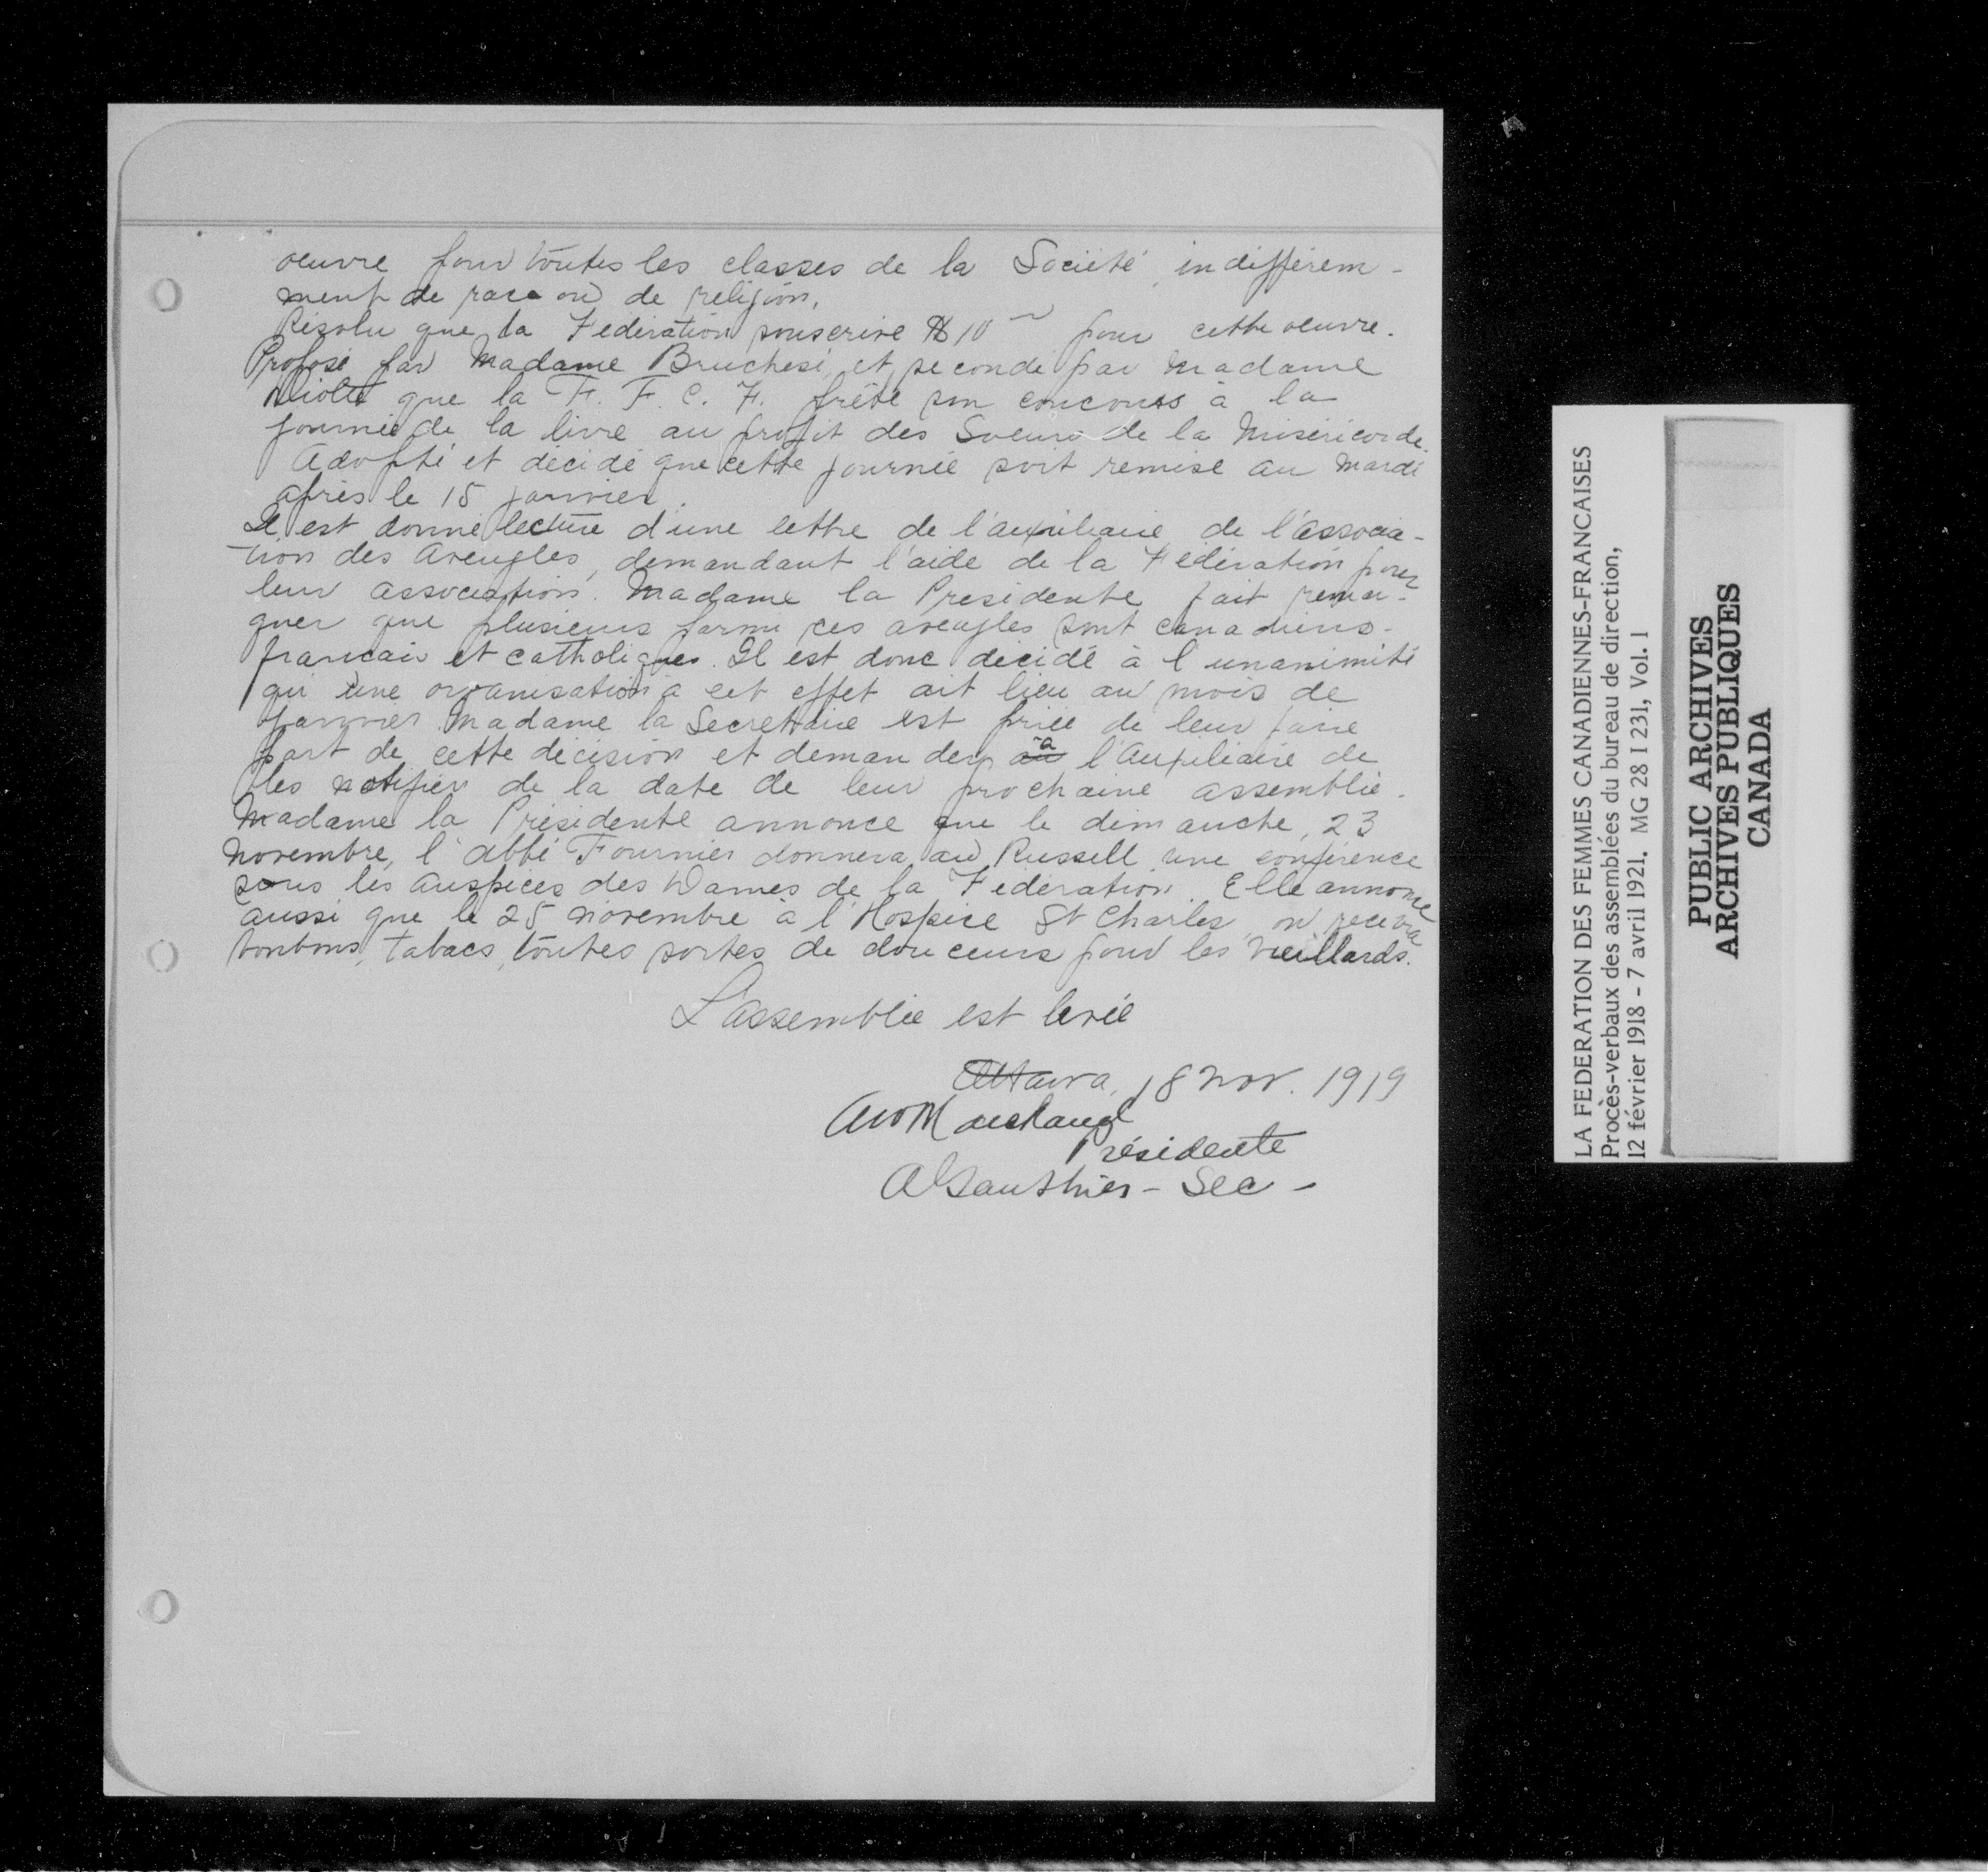 oeuvre pour toutes les classes de la Société, indifférem-
ment de race ou de religion.
Résolu que la Federation souscrive $10 pour cette oeuvre.
Proposé par Madame Bruchesi, et secondé par Madame
que la F. F. C. F. prête son concours à la
journée de la livre au profit des Soeurs de la Misericorde.
Adopté et décidé que cette journée soit remise au mardi
après le 15 janvier.
Il est donné lecture d'une lettre de l'auxiliaire de l'associa-
tion des Aveugles, demandant l'aide de la Fédération pour
leur association. Madame la Presidente fait remar-
quer que plusieurs parmi ces aveugles sont canadiens-
francais et catholiques. Il est donc décidé à l'unanimité
qu'une organisation à cet effet ait lieu au mois de
janvier. Madame la Secretaire est priée de leur faire
part de cette décision et demander à l'Auxiliaire de
les notifier de la date de leur prochaine assemblée.
Madame la Présidente annonce que le dimanche, 23
novembre, l'abbé Fournier donnera au Russell une conférence
sous les auspices des Dames de la Fédération. Elle annonce
aussi que le 25 novembre à l'Hospice St Charles on recevra
bonbons, tabacs, toutes sortes de douceurs pour les vieillards.
L'assemblée est levée
Ottawa, 18 nov. 1919
Marchand
Présidente
A Gauthier - Sec -
LA FEDERATION DES FEMMES CANADIENNES-FRANCAISES
Procès-verbaux des assemblées du bureau de direction,
12 février 1918 - 7 avril 1921. MG 28 I 231, Vol. 1
PUBLIC ARCHIVES
ARCHIVES PUBLIQUES
CANADA